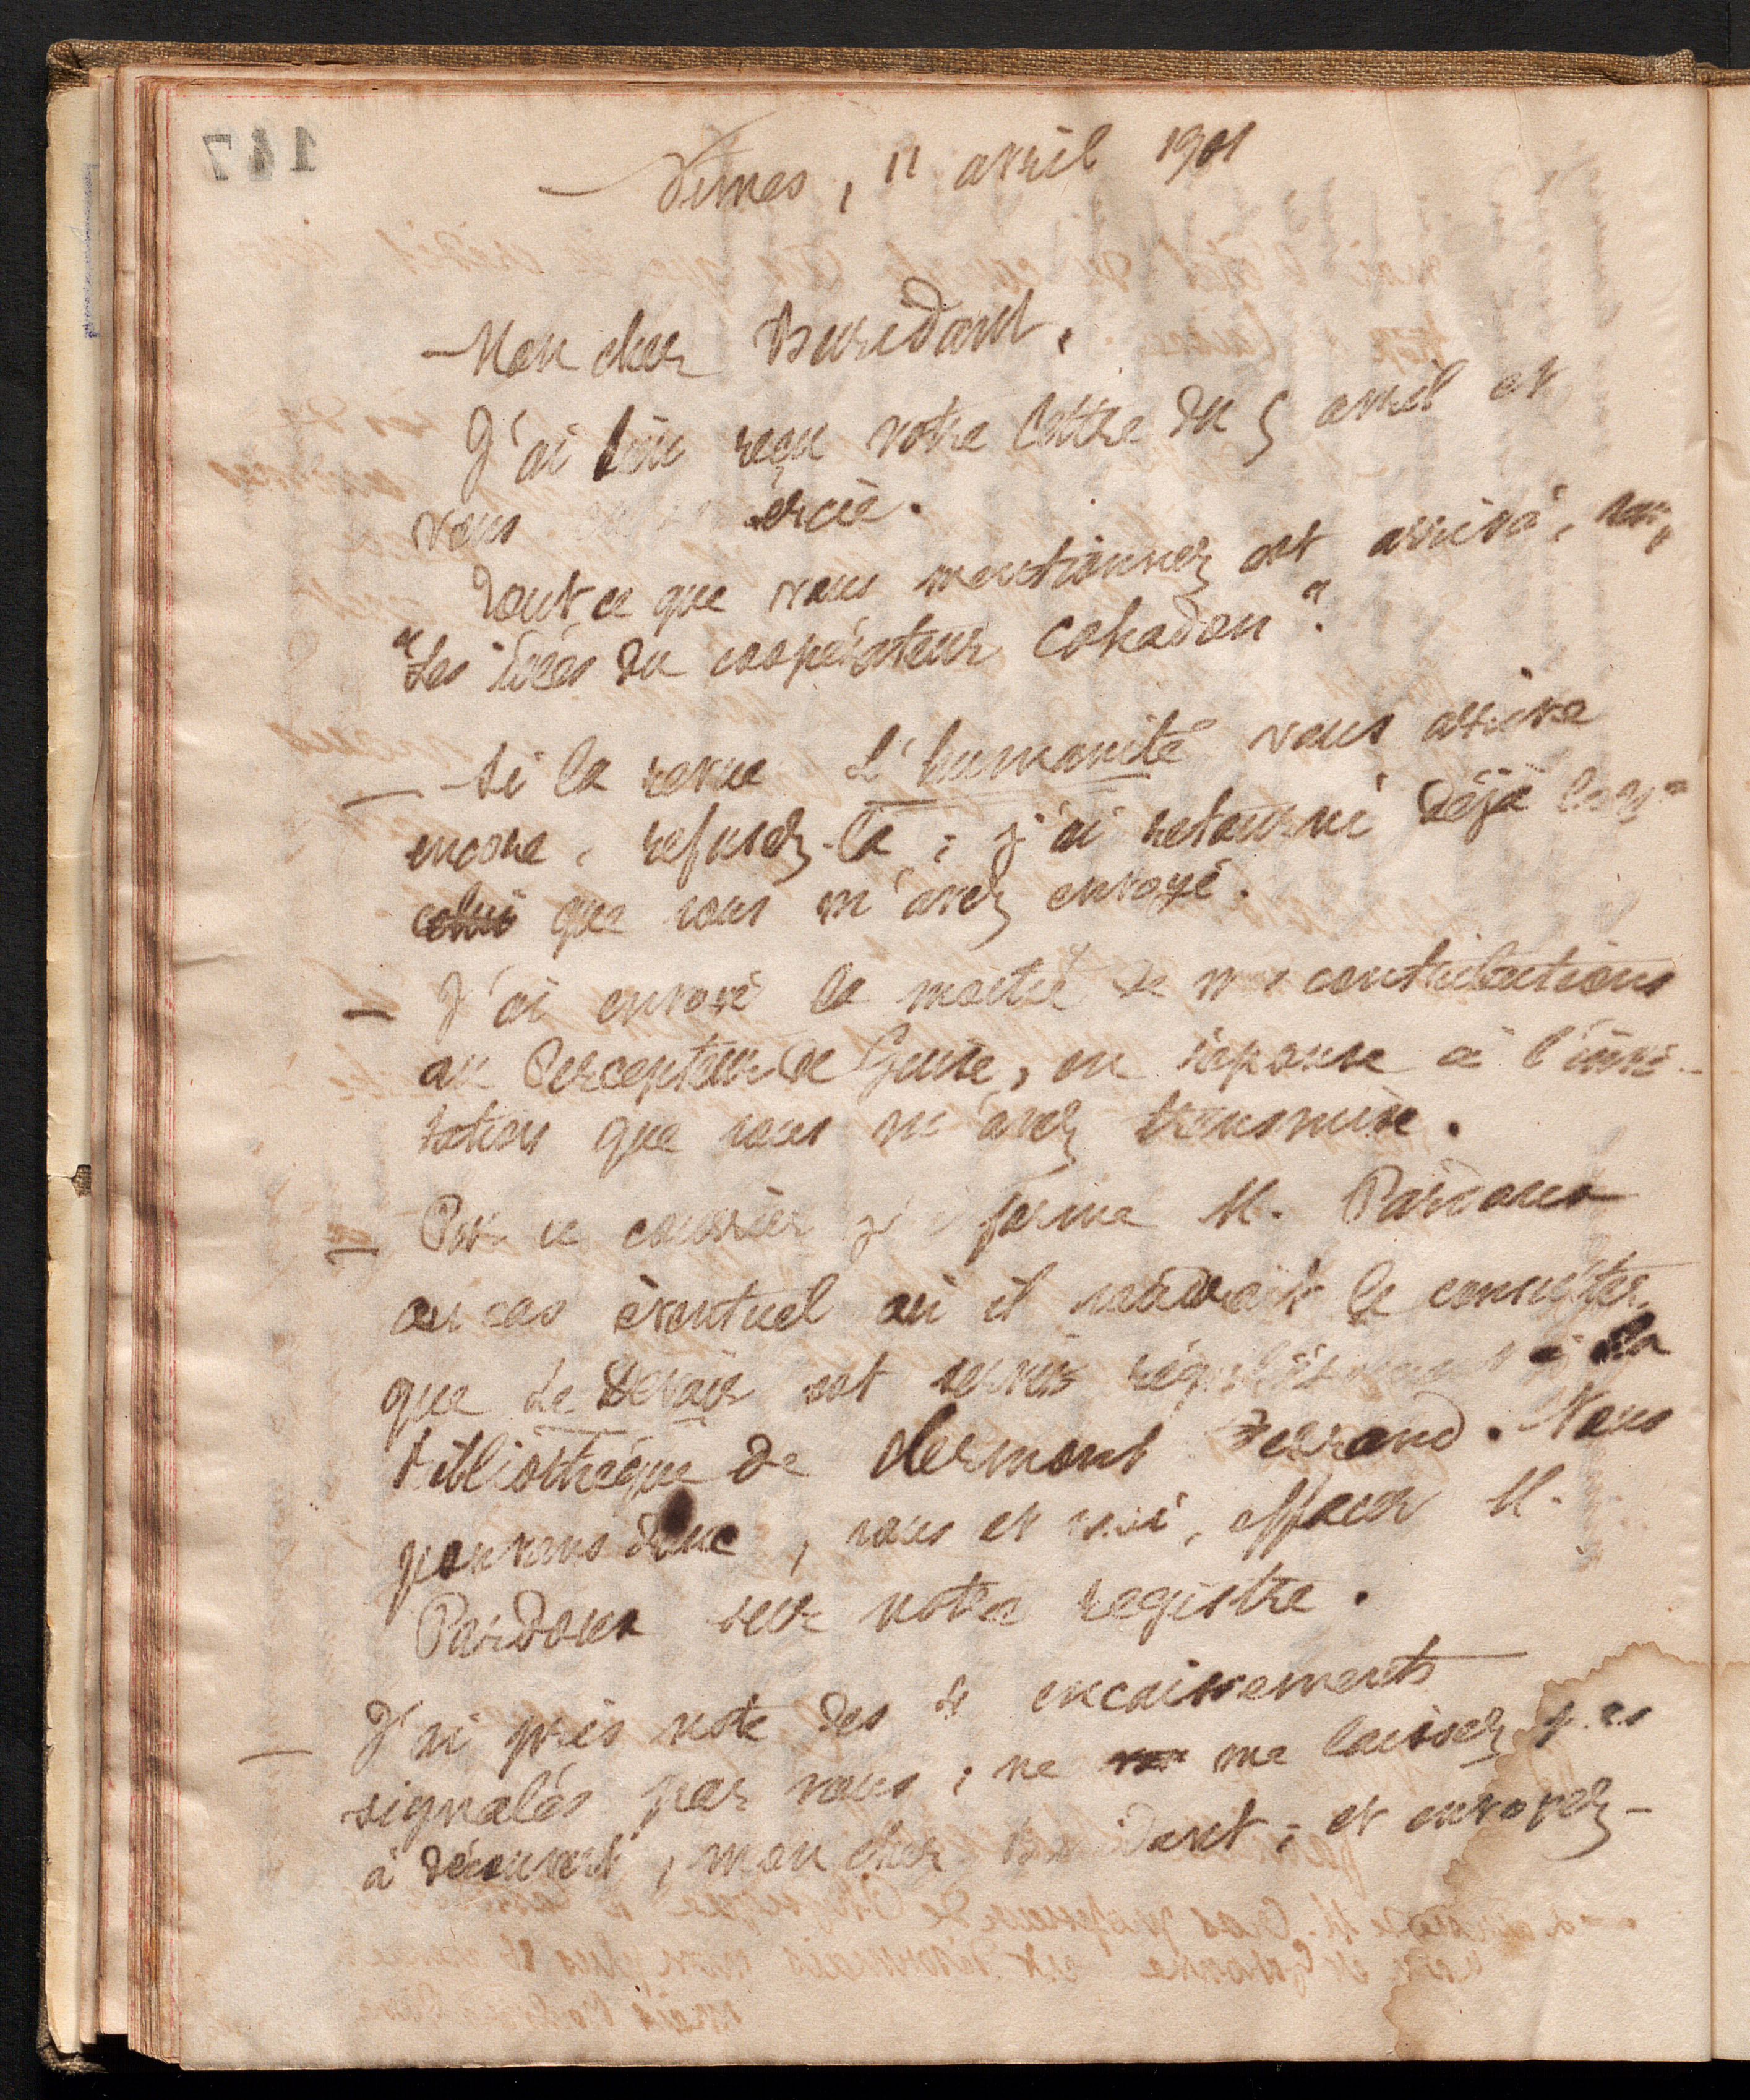 Nimes, 11 avril 1901
Mon cher Buridant,
J'ai bien reçu votre lettre du 5 avril et
vous en remercie.
Tout ce que vous mentionnez est arrivé,
"Les Idées du coopérateur Cohadon".
— Si la revue L'humanité vous arrive
encore, refusez-la ; j'ai retourné déjà
celui que vous m'avez envoyé.
— J'ai envoyé la moitié de mes contributions
au Percepteur de Guise, en réponse à l'invi-
tation que vous m'avez transmise.
— Par ce courrier j'informe M. Pardoux
au cas éventuel où il voudrait le consulter,
que Le Devoir est servi régulièrement à la
bibliothèque de Clermont Ferrand. Nous
pouvons donc, vous et moi, effacer M.
Pardoux sur notre registre.
— J'ai pris note des 4 encaissements
signalés par vous ; ne me laissez pas
à découvert, mon cher Buridant ; et envoyez-
147